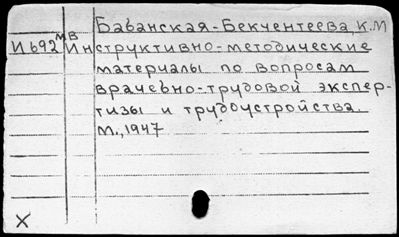 Бабанская-Бекчентеева, К.М
И692 МВ Инструктивно-методические
материалы по вопросам
врачебно-трудовой экспер-
тизы и трудоустройства.
М., 1947
X